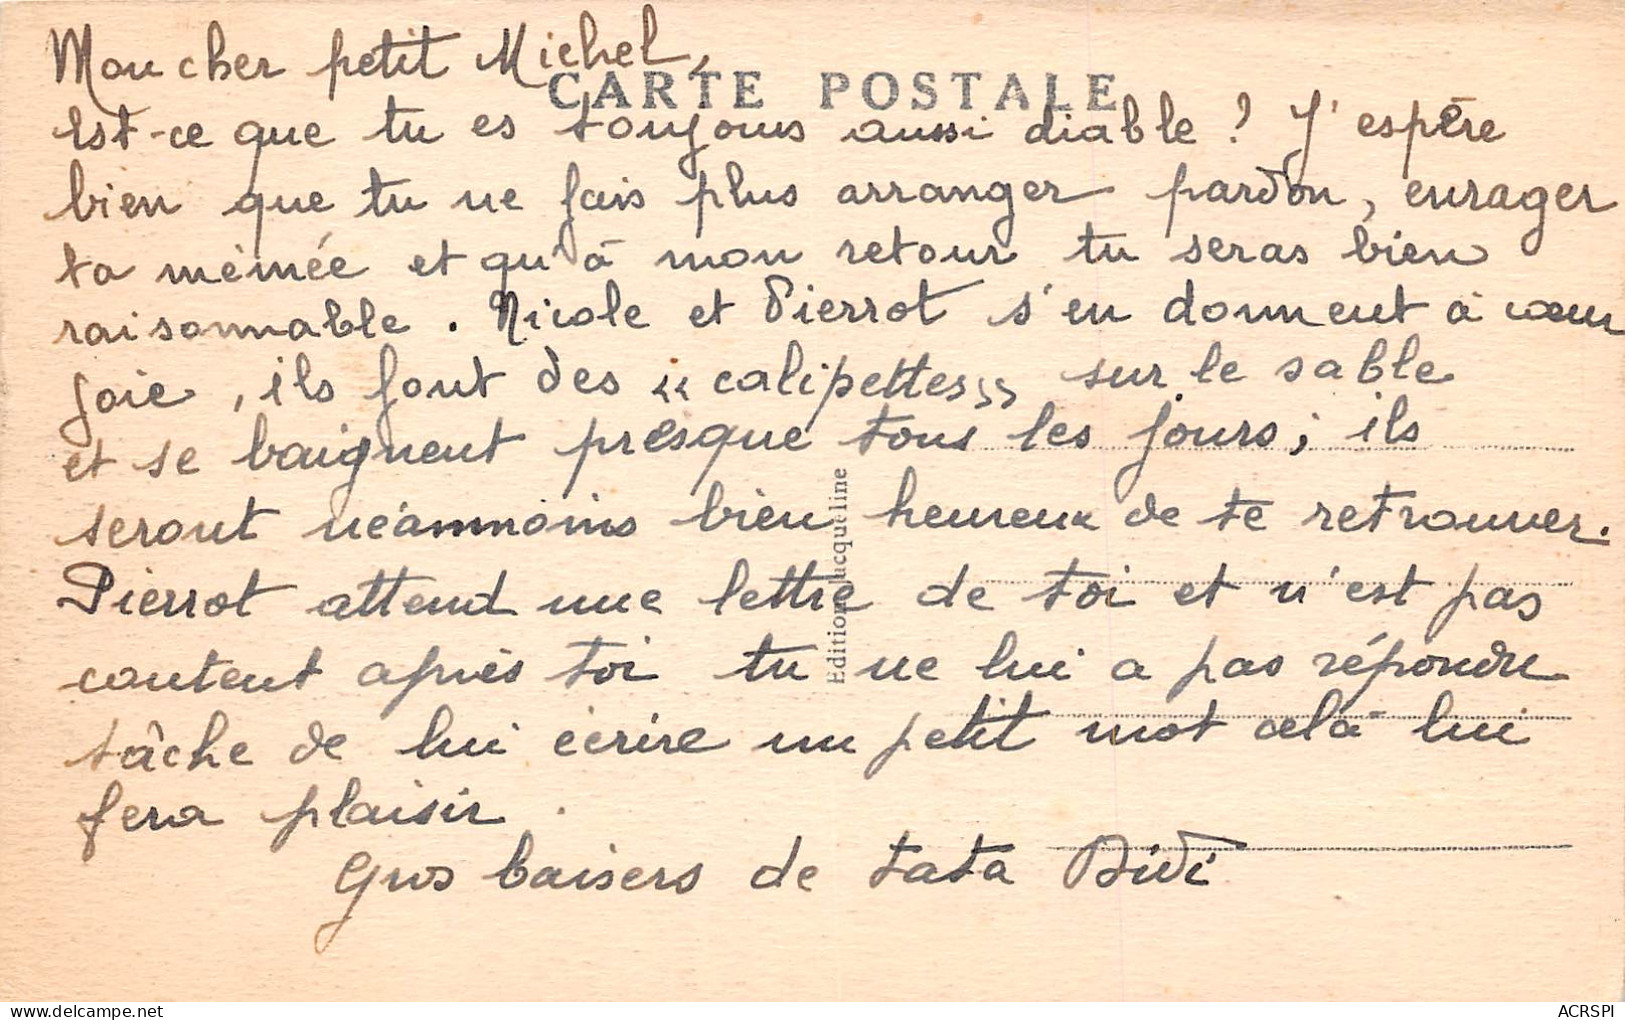 Mon cher petit Michel,
CARTE POSTALE
Est-ce que tu es toujours aussi diable ? J'espère
bien que tu ne fais plus arranger pardon, enrager
ta mèmée et qu'à mon retour tu seras bien
raisonnable. Nicole et Pierrot s'en donnent à cœur
joie, ils font des «calipettes» sur le sable
et se baignent presque tous les jours; ils
seront néammoins bien heureux de te retrouver.
Pierrot attend une lettre de toi et n'est pas
content après toi tu ne lui a pas répondu
tâche de lui écrire un petit mot celà lui
fera plaisir.
Gros baisers de tata Didi
Edition Jacqueline
ACRSPI